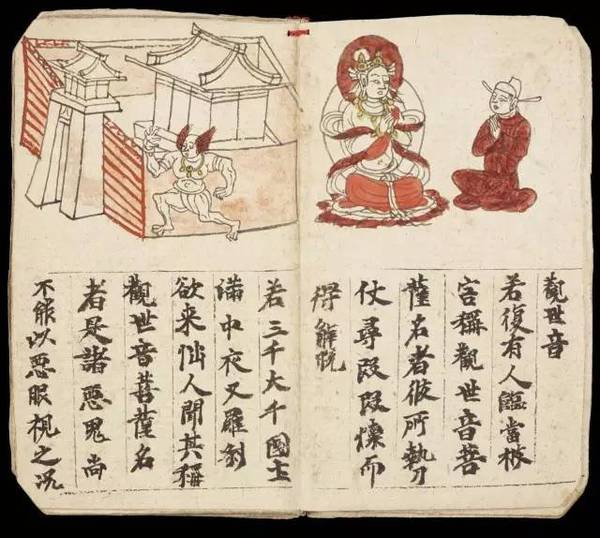 觀世音
若復有人臨當被
害稱觀世音菩
薩名者彼所執刀
仗尋段段壞而
得解脱
若三千大千國土
滿中夜叉羅剎
欲来惱人聞其稱
觀世音菩薩名
者是諸惡鬼尚
不能以惡眼視之況